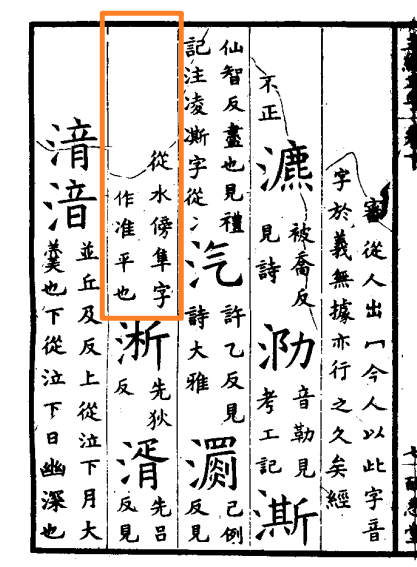 審從人出冖今人以此字音
字於義無據亦行之久矣經
不正
瀌
被喬反
見詩
泐
音勒見
考工記
澌
仙智反盡也見禮
記注凌凘字從冫
汽
許乙反見
詩大雅
瀱
己例
反見
從水傍隼字
作准平也
淅
先狄
反
湑
先呂
反見
湇
湆
並丘及反上從泣下月大
羹也下從泣下日幽深也